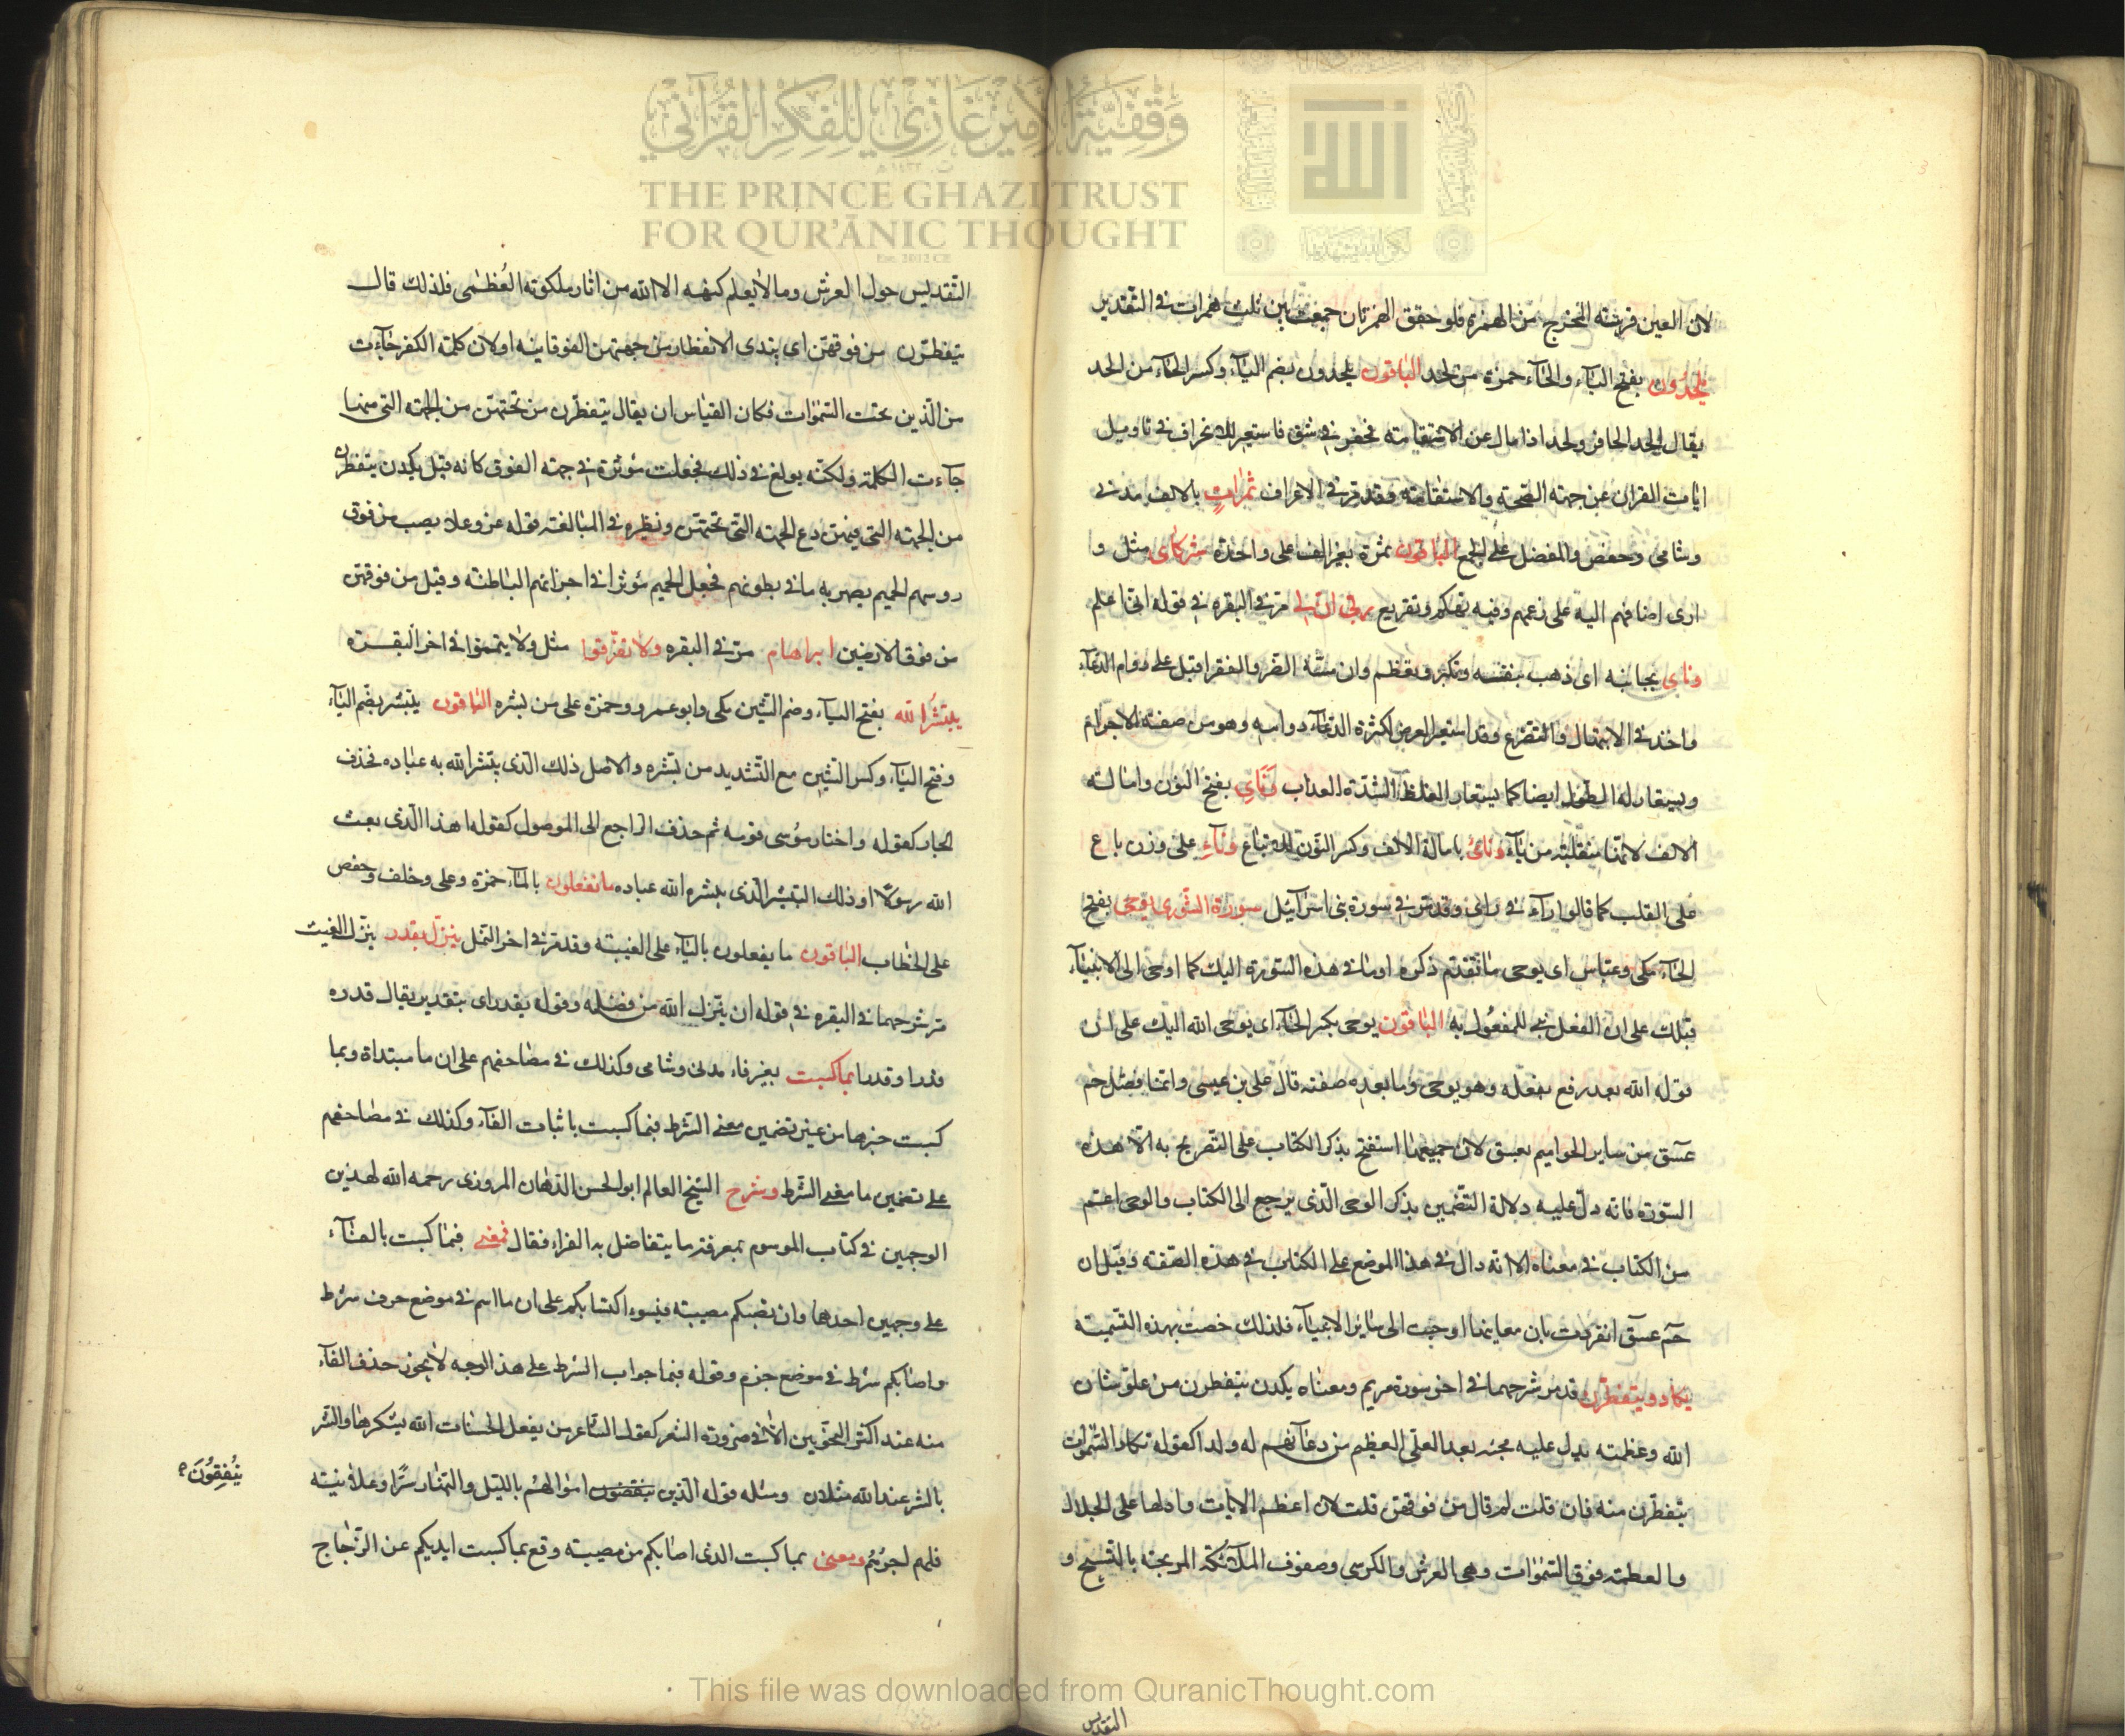 وَقْفِيَّةُ الأَمِيرْ غَازِي لِلْفِكْرِ القُرْآنِي
THE PRINCE GHAZI TRUST
FOR QUR'ĀNIC THOUGHT
Est. 2012 CE
الله
لان العين قريبة المخرج من الهمزة فلو حقق الهمزتان جمعت بين ثلث همزات في التقدير
يلحدون بفتح الياء والحاء حمزة من لحد الباقون يلحدون بضم الياء وكسر الحاء من الحد
يقال الحد الحافر ولحد اذا مال عن الاستقامة فحفر في شق فاستعير للانحراف في تاويل
ايات القران عن جهة الصحة والاستقامة وقد مر في الاعراف ثمرات بالالف مدني
وشامي وحفص والمفضل على الجمع الباقون ثمرة بغير الف على واحدة شركاى مثل و
ارى اضافهم اليه على زعمهم وفيه تهكم وتقريع ربي ان لي مر في البقره في قوله اني اعلم
وناى بجانبه اى ذهب بنفسه وتكبر وتعظم وان مسه الضر والفقر اقبل على دوام الدعاء
واخذ في الابتهال والتضرع وقد استعير العرض لكثرة الدعاء ودوامه وهو من صفة الاجرام
ويستعار له الطول ايضا كما يستعار الغلظ لشدة العذاب وَنَاىِ بفتح النون وامالة
الالف لانها منقلبة من ياء ونائ بامالة الالف وكسر النون للاتباع وناء على وزن باع
على القلب كما قالوا راء في راى وقد مر في سورة بني اسرائيل سورة الشورى يوحى بفتح
الحاء مكي وعباس اى يوحى ما تقدم ذكره او ما في هذه السورة اليك كما اوحى الى الانبياء
قبلك على ان الفعل بني للمفعول به الباقون يوحى بكسر الحاء اى يوحى الله اليك على ان
قوله الله بعد رفع بفعله وهو يوحى وما بعده صفته قال على بن عيسى وانما فصل حم
عسق من ساير الحواميم بعسق لان جميعها استفتح بذكر الكتاب على التصريح به الا هذه
السورة فانه دل عليه دلالة التضمين بذكر الوحى الذى يرجع الى الكتاب والوحى اعم
من الكتاب في معناه الا انه دال في هذا الموضع على الكتاب في هذه الصفة وقيل ان
حم عسق انفردت بان معاينها اوحيت الى ساير الانبياء فلذلك خصت بهذه التسمية
يكاد ويتفطرن وقد مر شرحهما في اخر سورة مريم ومعناه يكدن يتفطرن من علو شان
الله وعظمته يدل عليه مجيئه بعد العلي العظيم من دعائهم له ولدا كقوله تكاد السموات
يتفطرن منه فان قلت لم قال من فوقهن قلت لان اعظم الايات وادلها على الجلال
والعظمة فوق السموات وهي العرش والكرسي وصفوف الملائكة المرتجة بالتسبيح و
التقديس
التقديس حول العرش وما لا يعلم كنهه الا الله من اثار ملكوته العُظمى فلذلك قال
يتفطرون من فوقهن اى يبتدى الانفطار من جهتهن الفوقانيه او لان كلمة الكفر جاءت
من الذين تحت السموات فكان القياس ان يقال يتفطرن من تحتهن من الجهة التى منها
جاءت الكلمة ولكنه بولغ في ذلك فجعلت مؤثرة في جهة الفوق كانه قيل يكدن يتفطرن
من الجهة التى فوقهن دع الجهة التى تحتهن ونظيره في المبالغة قوله عز وعلا يصب من فوق
روسهم الحميم يصهر به ما في بطونهم فجعل الحميم مؤثرا في اجزائهم الباطنة وقيل من فوقهن
من فوق الارضين ابراهام مر في البقره ولا تفرقوا مثل ولا يتمموا في اخر البقرة
يبشر الله بفتح الياء وضم الشين مكى وابو عمرو وحمزة على من بشره الباقون يبشر بضم الياء
وفتح الباء وكسر الشين مع التشديد من بشره والاصل ذلك الذى يبشر الله به عباده فحذف
الجار كقوله واختار موسى قومه ثم حذف الراجع الى الموصول كقوله اهذا الذى بعث
الله رسولا او ذلك التبشير الذى يبشره الله عباده ما تفعلون بالتاء حمزة وعلى وخلف وحفص
على الخطاب الباقون ما يفعلون بالياء على الغيبة وقد مر في اخر النمل ينزل بقدر ينزل الغيث
مر شرحهما في البقره في قوله ان ينزل الله من فضله وقوله بقدر اى بتقدير يقال قدره
قدرا وقدرا بما كسبت بغير فاء مدنى وشامى وكذلك في مصاحفهم على ان ما مبتداة وبما
كسبت خبرها من غير تضمين معنى الشرط فبما كسبت باثبات الفاء وكذلك في مصاحفهم
على تضمين ما معنى الشرط وشرح الشيخ العالم ابو الحسن الدهان المروزى رحمه الله لهذين
الوجهين في كتاب الموسوم بمعرفة ما يتفاضل به القراء فقال فمعنى فبما كسبت بالفاء
على وجهين احدهما وان تصبكم مصيبة فبسوء اكتسابكم على ان ما اسم في موضع حرف شرط
واصابكم شرط في موضع جزم وقوله فبما جواب الشرط على هذا الوجه لا يجوز حذف الفاء
منه عند اكثر النحويين الا في ضرورة الشعر كقول الشاعر من يفعل الحسنات الله يشكرها والشر
بالشر عند الله مثلان ومثله قوله الذين ينفقون اموالهم بالليل والنهار سرا وعلانية
يُنْفِقُونَ
فلهم اجرهم ومعنى بما كسبت الذى اصابكم من مصيبة وقع بما كسبت ايديكم عن الزجاج
This file was downloaded from QuranicThought.com